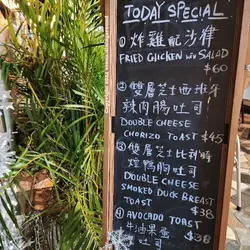 TODAY SPECIAL
① 炸雞配沙律
FRIED CHICKEN W/ SALAD
$60
② 雙層芝士西班牙
辣肉腸吐司
DOUBLE CHEESE
CHORIZO TOAST $45
③ 雙層芝士比利時
煙鴨胸吐司
DOUBLE CHEESE
SMOKED DUCK BREAST
TOAST $38
④ AVOCADO TOAST
牛油果蛋 $38
吐司